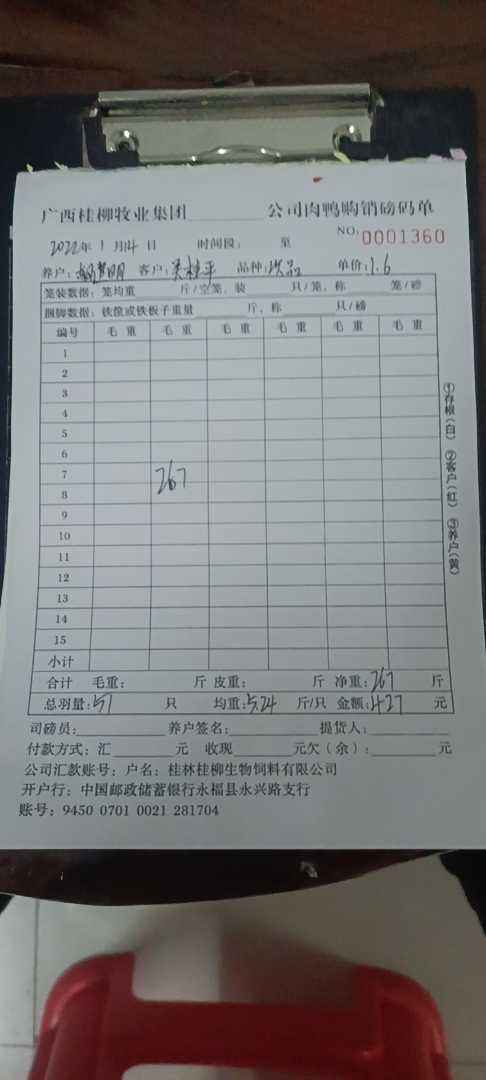 广西桂柳牧业集团________公司肉鸭购销磅码单
NO:0001360
2022年 1 月14日 时间段： 至
养户： 明 客户：吴桂平 品种：次品 单价：1.6
笼装数据：笼均重 斤/空笼，装 只/笼，称 笼/磅
捆脚数据：铁筐或铁板子重量 斤，称 只/磅
编号 毛 重 毛 重 毛 重 毛 重 毛 重 毛 重
1
2
3
4
5
6
7
267
8
9
10
11
12
13
14
15
小计
合计 毛重： 斤 皮重： 斤 净重：267 斤
总羽量：51 只 均重：5.24 斤/只 金额：427 元
司磅员：________ 养户签名：________ 提货人：________
付款方式：汇________元 收现________元欠（余）：________元
公司汇款账号：户名：桂林桂柳生物饲料有限公司
开户行：中国邮政储蓄银行永福县永兴路支行
账号：9450 0701 0021 281704
①存根（白） ②客户（红） ③养户（黄）